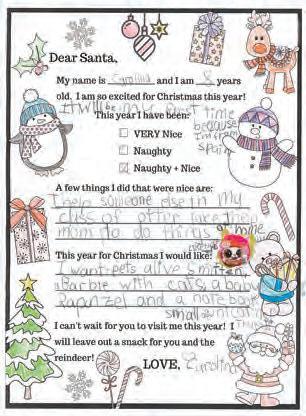 Dear Santa,
My name is Carolina and I am 8 years
old. I am so excited for Christmas this year!
It will be my first time
This year I have been:
because
I'm from
spain
VERY Nice
Naughty
Naughty + Nice
A few things I did that were nice are:
I help someone else in my
class of office
mom to do things at home
This year for Christmas I would like:
I want pets alive
a Barbie with cats, a baby
Rapunzel and a notebook
small
I can't wait for you to visit me this year! I
will leave out a snack for you and the
reindeer!
LOVE, Carolina